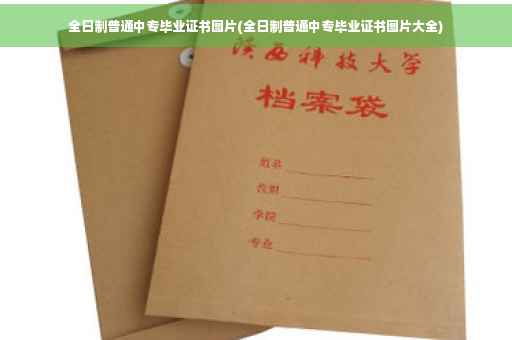 全日制普通中专毕业证书图片(全日制普通中专毕业证书图片大全)
陕西科技大学
档案袋
姓名
学院
专业